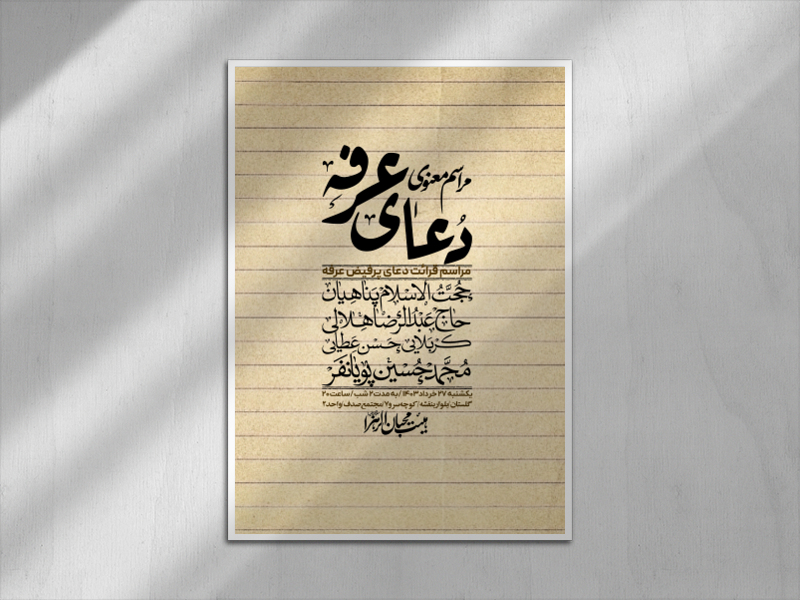 مراسم معنوی
دعای عرفه
مراسم قرائت دعای پرفیض عرفه
حُجَّتُ الاسلام پناهیان
حاج عَبْدُالرِّضا هلالی
کربلایی حسن عطایی
مُحَمَّد حُسین پویانفر
یکشنبه ۲۷ خرداد ۱۴۰۳ / به مدت ۲ شب / ساعت ۲۰
گلستان / بلوار بنفشه / کوچه سرو ۷ / مجتمع صدف / واحد ۲
هیئت محبان الزهرا